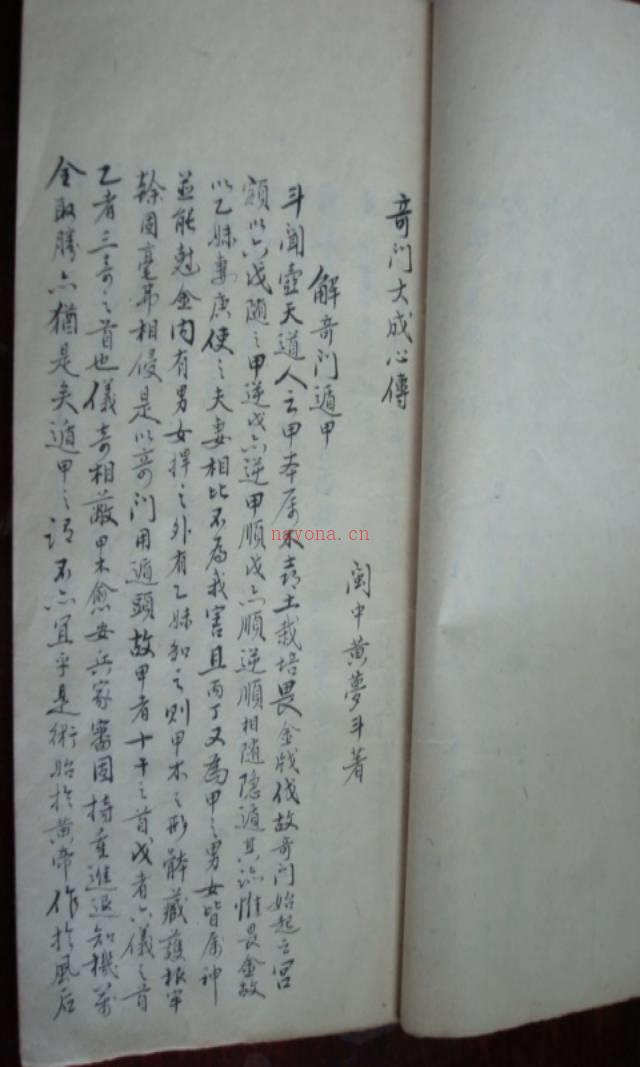 奇门大成心傳
閩中黄夢斗著
解奇门遁甲
斗聞壺天道人云甲本属木喜土栽培畏金戕伐故奇门始起之宮
額以六戊随之甲逆戊亦逆甲順戊亦順逆順相随隐遁其跡惟畏金故
以乙妹妻庚使之夫妻相比不為我害且丙丁又為甲之男女皆属神
並能尅金内有男女捍之外有乙妹和之則甲木之形體藏護根牢
榦固毫弗相侵是以奇门用遁頭故甲者十干之首戊者六儀之首
乙者三奇之首也儀奇相蔽甲木愈安兵家審固持重進退知機萬
全取勝亦猶是矣遁甲之謂不亦宜乎是術始於黄帝作於風后
nayona.cn